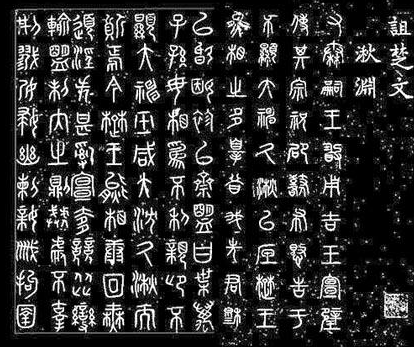 詛楚文
湫淵
又秦嗣王敢用吉玉宣璧
使其宗祝邵鼛布愍告于
不顯大神久湫以厎楚王
熊相之多辠昔我先君穆
以婚姻袗以齋盟曰葉萬
子孫毋相為不利親卬不
顯大神巫咸大沈久湫而
質焉今楚王熊相康回無
道淫失甚亂宣侈競從變
輸盟制內之則暴虐不辜
刑戮孕婦幽刺親戚拘圉